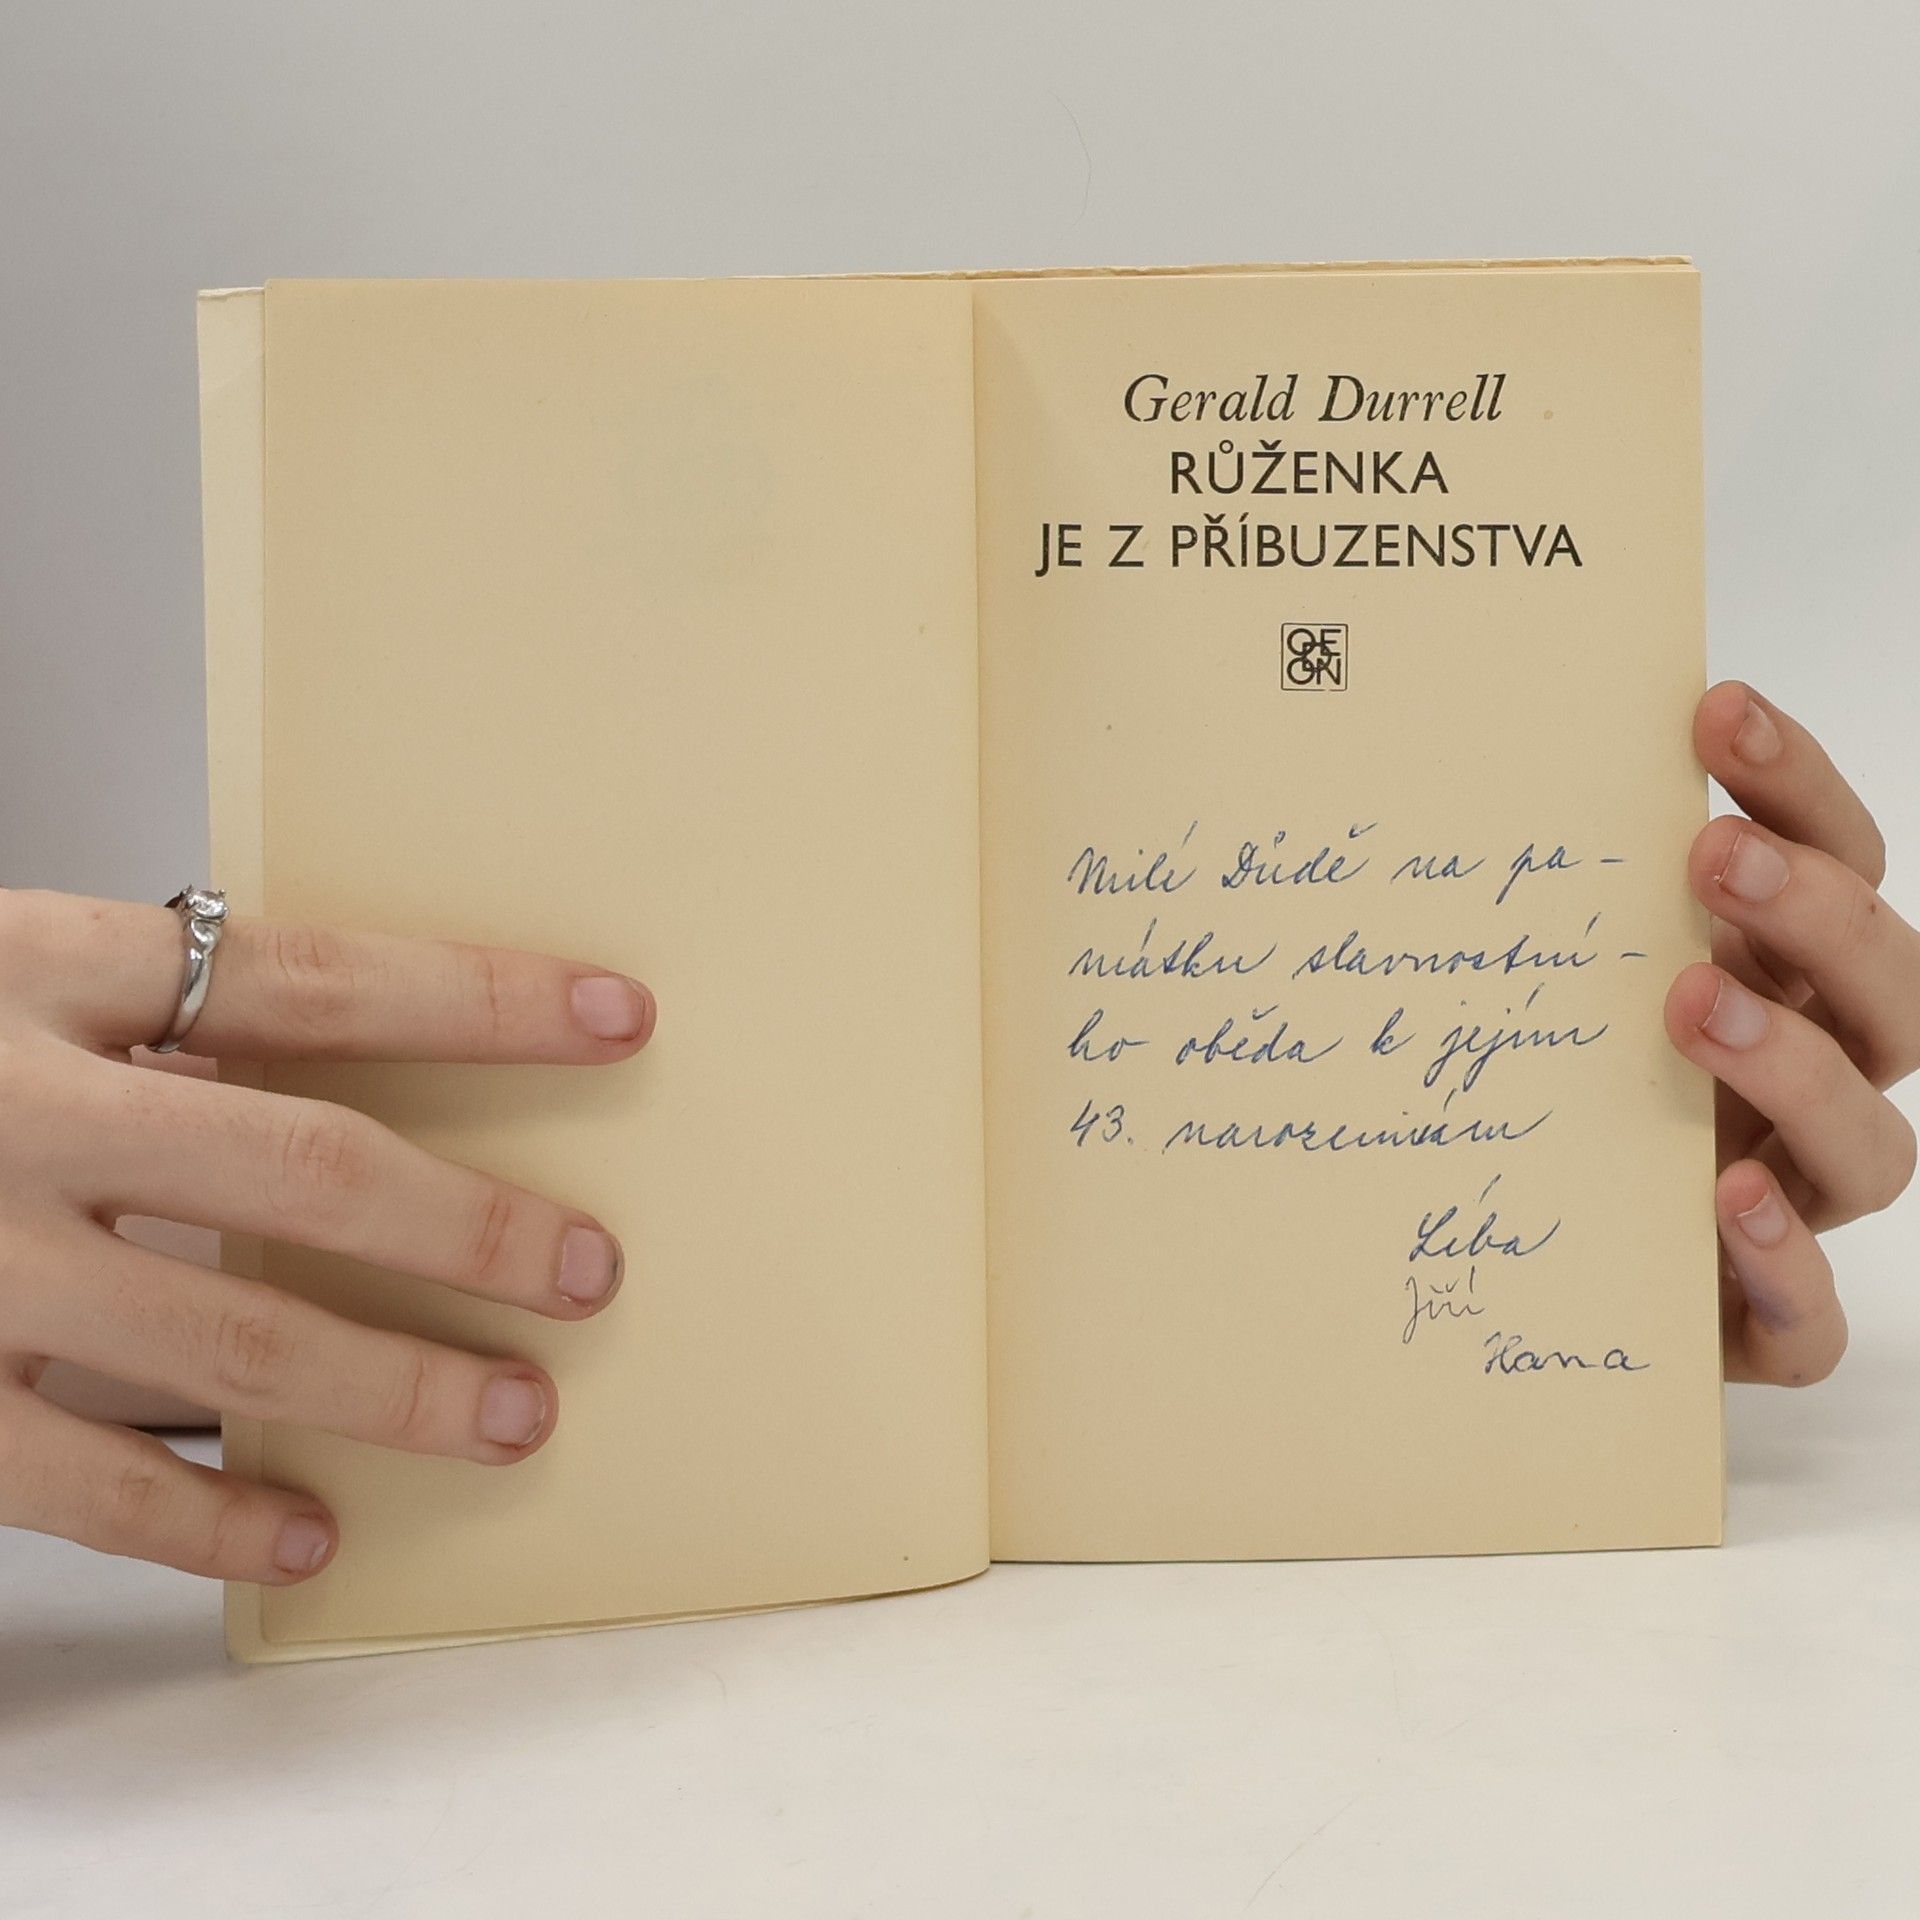 Gerald Durrell
RŮŽENKA
JE Z PŘÍBUZENSTVA
ODEON
Milé Důdě na pa-
mátku slavnostní-
ho oběda k jejím
43. narozeninám
Líba
Jiří
Hana